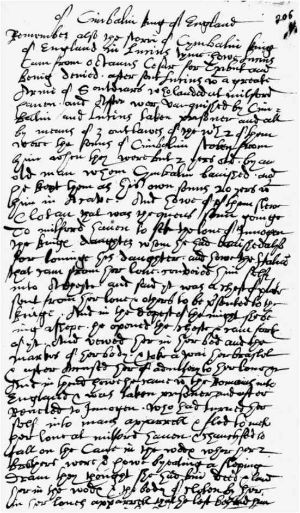 of Cimbalin king of England
206
Remember also the storri of Cymbalin king
of England in Lucius tyme howe Lucius
Cam from Octauus Cesar for Tribut and
being denied after sent Lucius wth a greate
Arme of Souldiars who landed at milford
hauen and Affter wer vanquished by Cim-
balin and Lucius taken prisoner and all
by means of 3 outlawes of the wch 2 of them
were the sonns of Cimbalin stolen from
him when they were but 2 yers old by an
old man whom Cymbalin banished and
he kept them as his own sonns 20 yers wth
him in A cave. And howe of of them slewe
Clotan that was the quens sonn goinge
To milford hauen to sek the loue of Innogen
the kinges daughter whom he had banished also
for louinge his daughter and howe the Italian
that cam from her loue conveied him selfe
into A cheste and said yt was a chest of plate
sent from her loue & others to be presented to the
kinge. And in the depest of the night she be-
ing aslepe he opened the cheste & cam forth
of yt. And vewed her in her bed and the
markes of her body & toke awai her braslet
& after Accused her of adultery to her loue &c
And in thend howe he came wth the Romains into
England & was taken prisoner and after
Reueled to Innogen. Who had turned her
self into mans apparrell & fled to mete
her loue at milford hauen & chanchsed to
fall on the Caue in the wodes wher her 2
brothers were & howe by eating a sleping
Dram they thought she had bin deed & laid
her in the wodes & the body of cloten by her.
in her loues apparrell that he left behind him